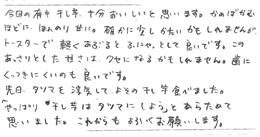 今回の有午 干し芋、十分おいしいと思います。かめばかむ
ほどに、ほんのり甘い。確かに少しかたいかもしれませんが、
トースターで軽くあぶると、ふにゃっとして良いです。この
あっさりとした甘さは、クセになるかもしれません。歯に
くっつきにくいのも良いです。
先日、タツマを浮気してよその干し芋食べました。
「やっぱり干し芋はタツマにしよう」とあらためて
思いました。これからもよろしくお願いします。